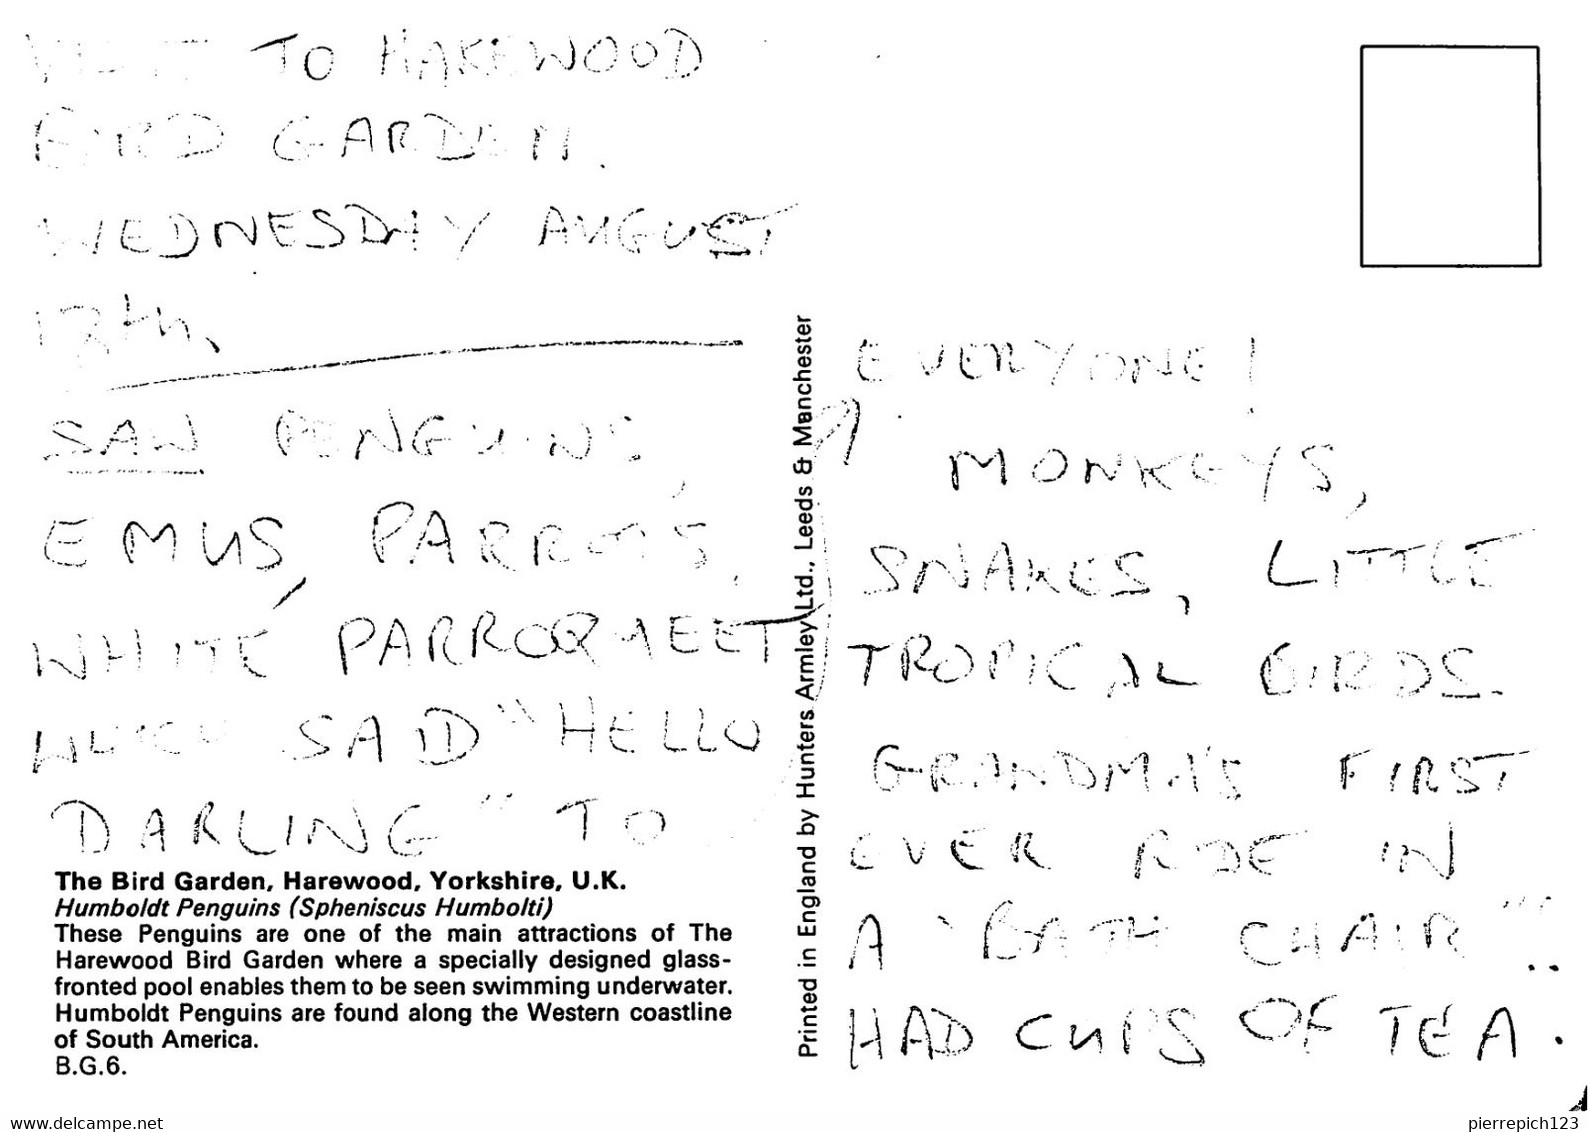 VISIT TO HAREWOOD
BIRD GARDEN.
WEDNESDAY AUGUST
12th.
SAW PENGUINS,
EMUS, PARROTS,
WHITE PARROQUEET
WHICH SAID "HELLO
DARLING" TO
The Bird Garden, Harewood, Yorkshire, U.K.
Humboldt Penguins (Spheniscus Humbolti)
These Penguins are one of the main attractions of The
Harewood Bird Garden where a specially designed glass-
fronted pool enables them to be seen swimming underwater.
Humboldt Penguins are found along the Western coastline
of South America.
B.G.6.
Printed in England by Hunters Armley Ltd., Leeds & Manchester
EVERYONE!
MONKEYS,
SNAKES, LITTLE
TROPICAL BIRDS.
GRANDMA'S FIRST
EVER RIDE IN
A "BATH CHAIR"!..
HAD CUPS OF TEA.
www.delcampe.net
pierrepich123